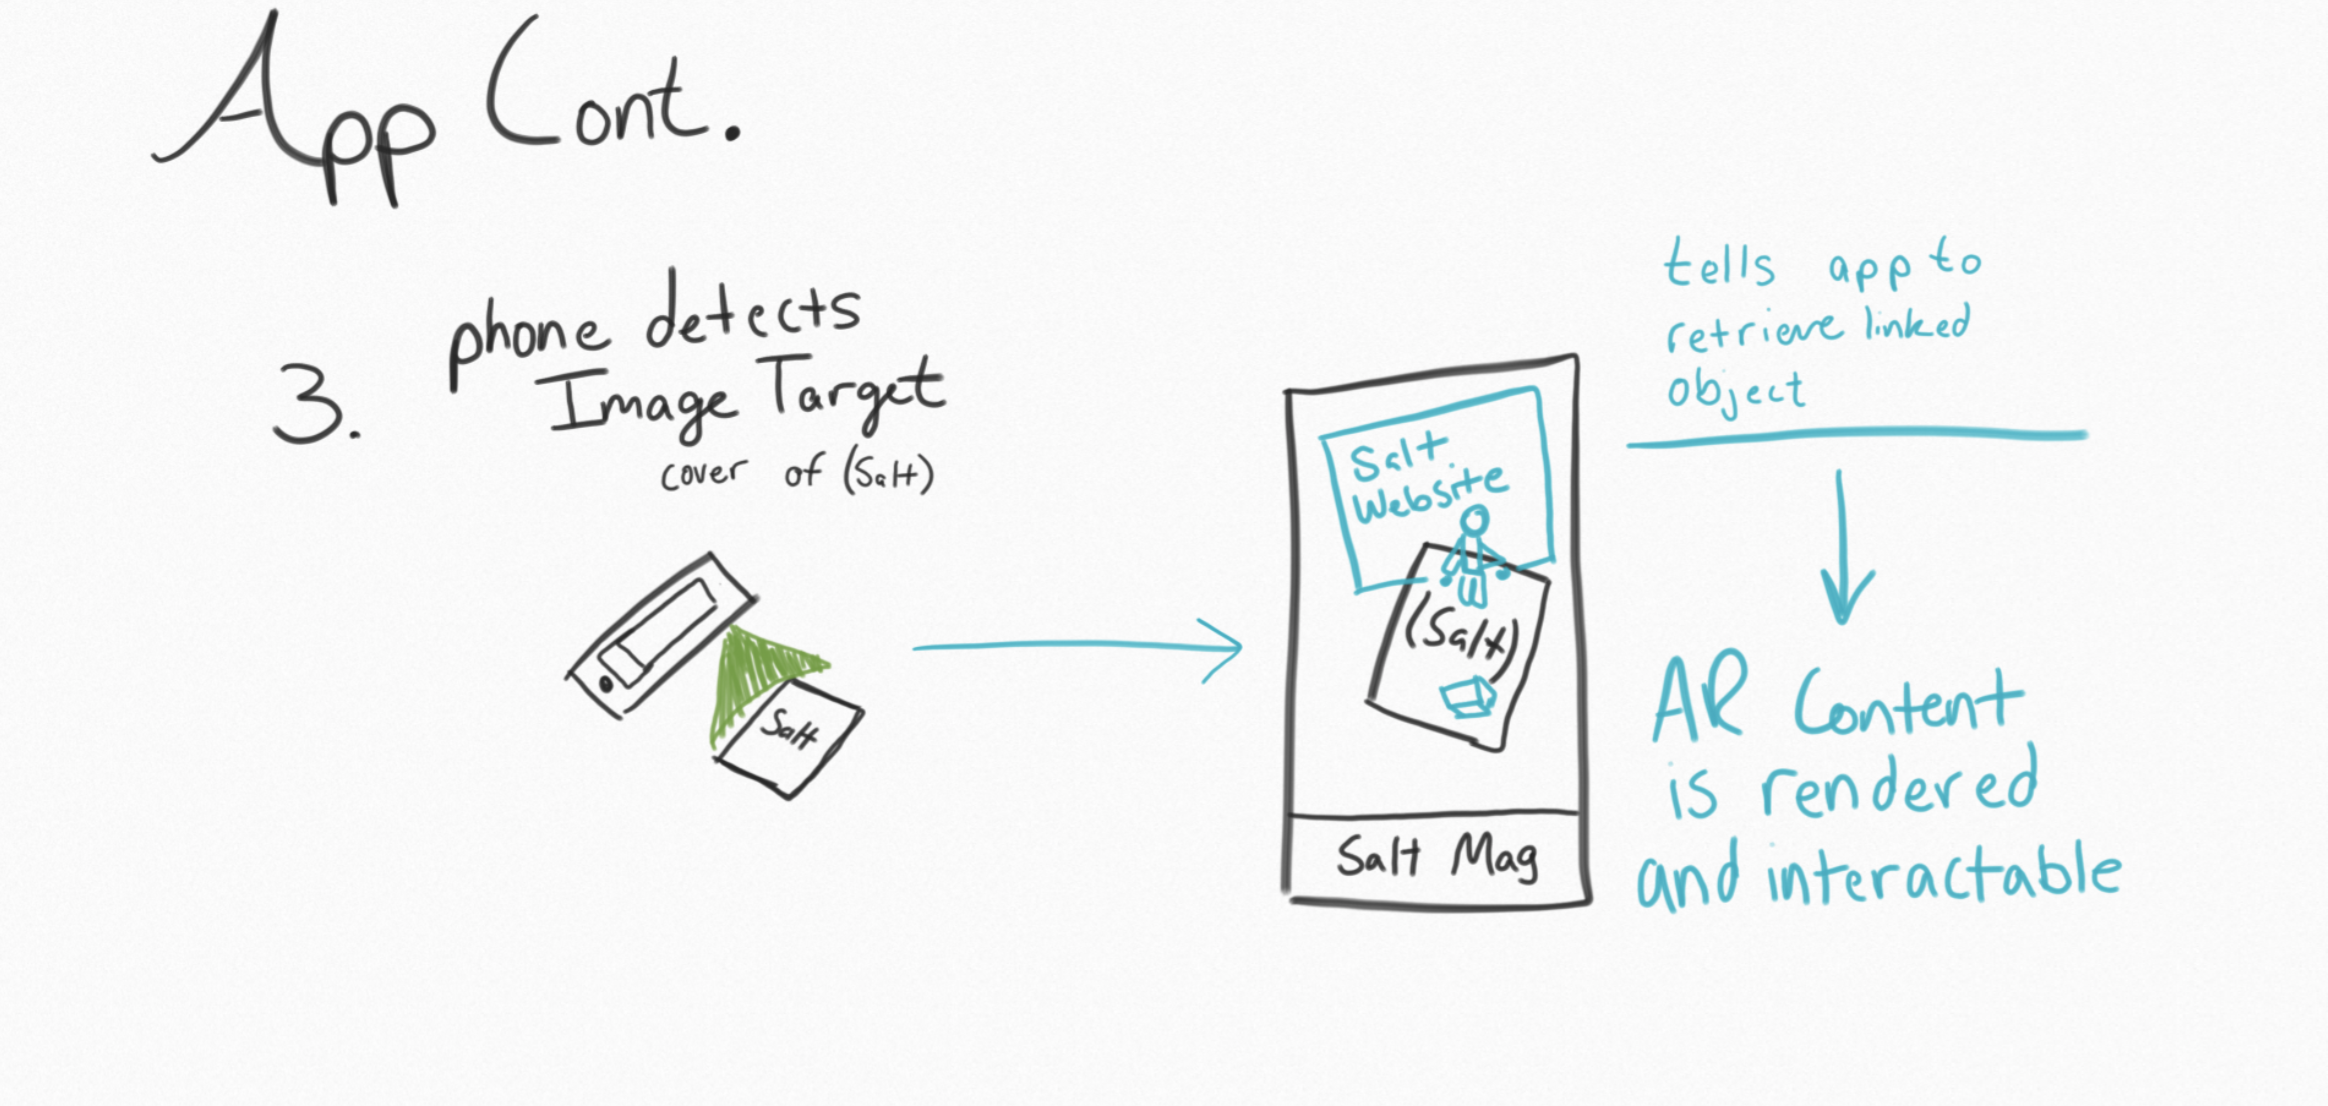 App Cont.
3.
phone detects
Image Target
cover of (Salt)
Salt
Salt
Website
(Salt)
Salt Mag
tells app to
retrieve linked
object
AR Content
is rendered
and interactable